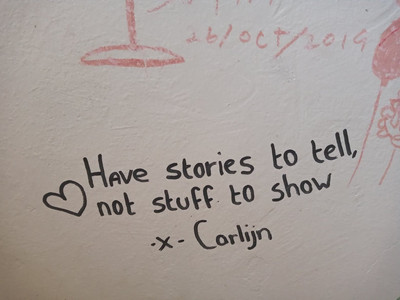 26/OCT/2019
Have stories to tell,
not stuff to show
-x- Carlijn